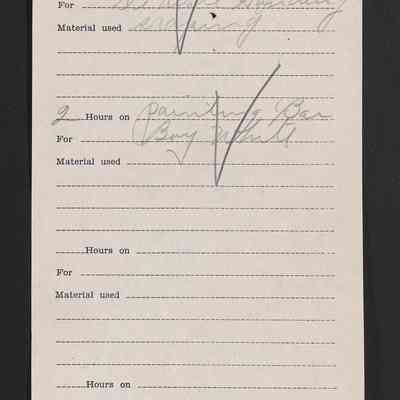 For
Material used
2 Hours on painting Bar
For Boy White
Material used
Hours on
For
Material used
Hours on